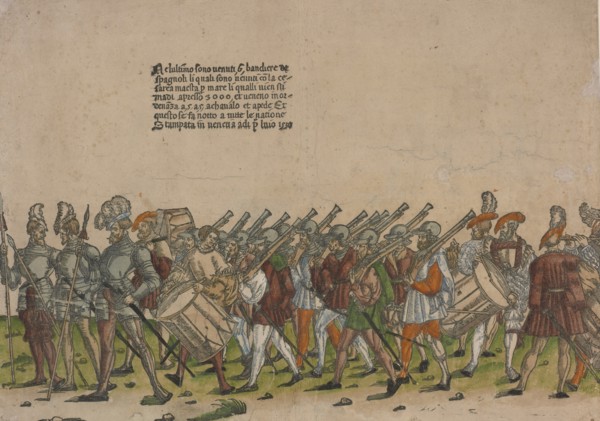 Nelultimo sono uenuti 6 bandiere de
spagnoli li quali sono uenuti cõ la ce-
sarea maesta p mare li qualli uien sti-
madi apresso 5000, et ueneno in or-
denanza a.5.a5. a chauallo et apede Et
questo se fa notto a tutte le natione
Stampata in uenetia adi p luio 1530